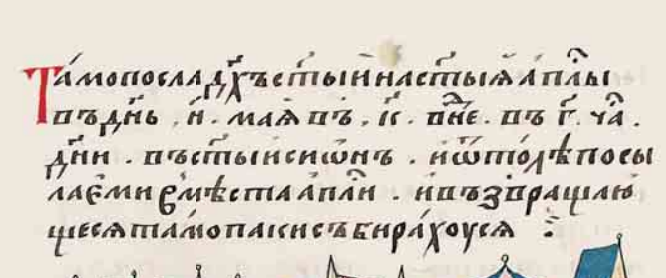 Тамопосла дх҃ъст҃ыи нас҃тыѧ ап҃лы
въдн҃ь . н҃ . маꙗ въ . к҃ . вн҃е . въ г҃ . ча҃ .
дн҃и . въст҃ыисиѡнъ . иѿтолѣпосы
лаеми вмѣста ап҃ли . ивъзвращаю
щесѧ тамопакисъбирахоусѧ ⁘